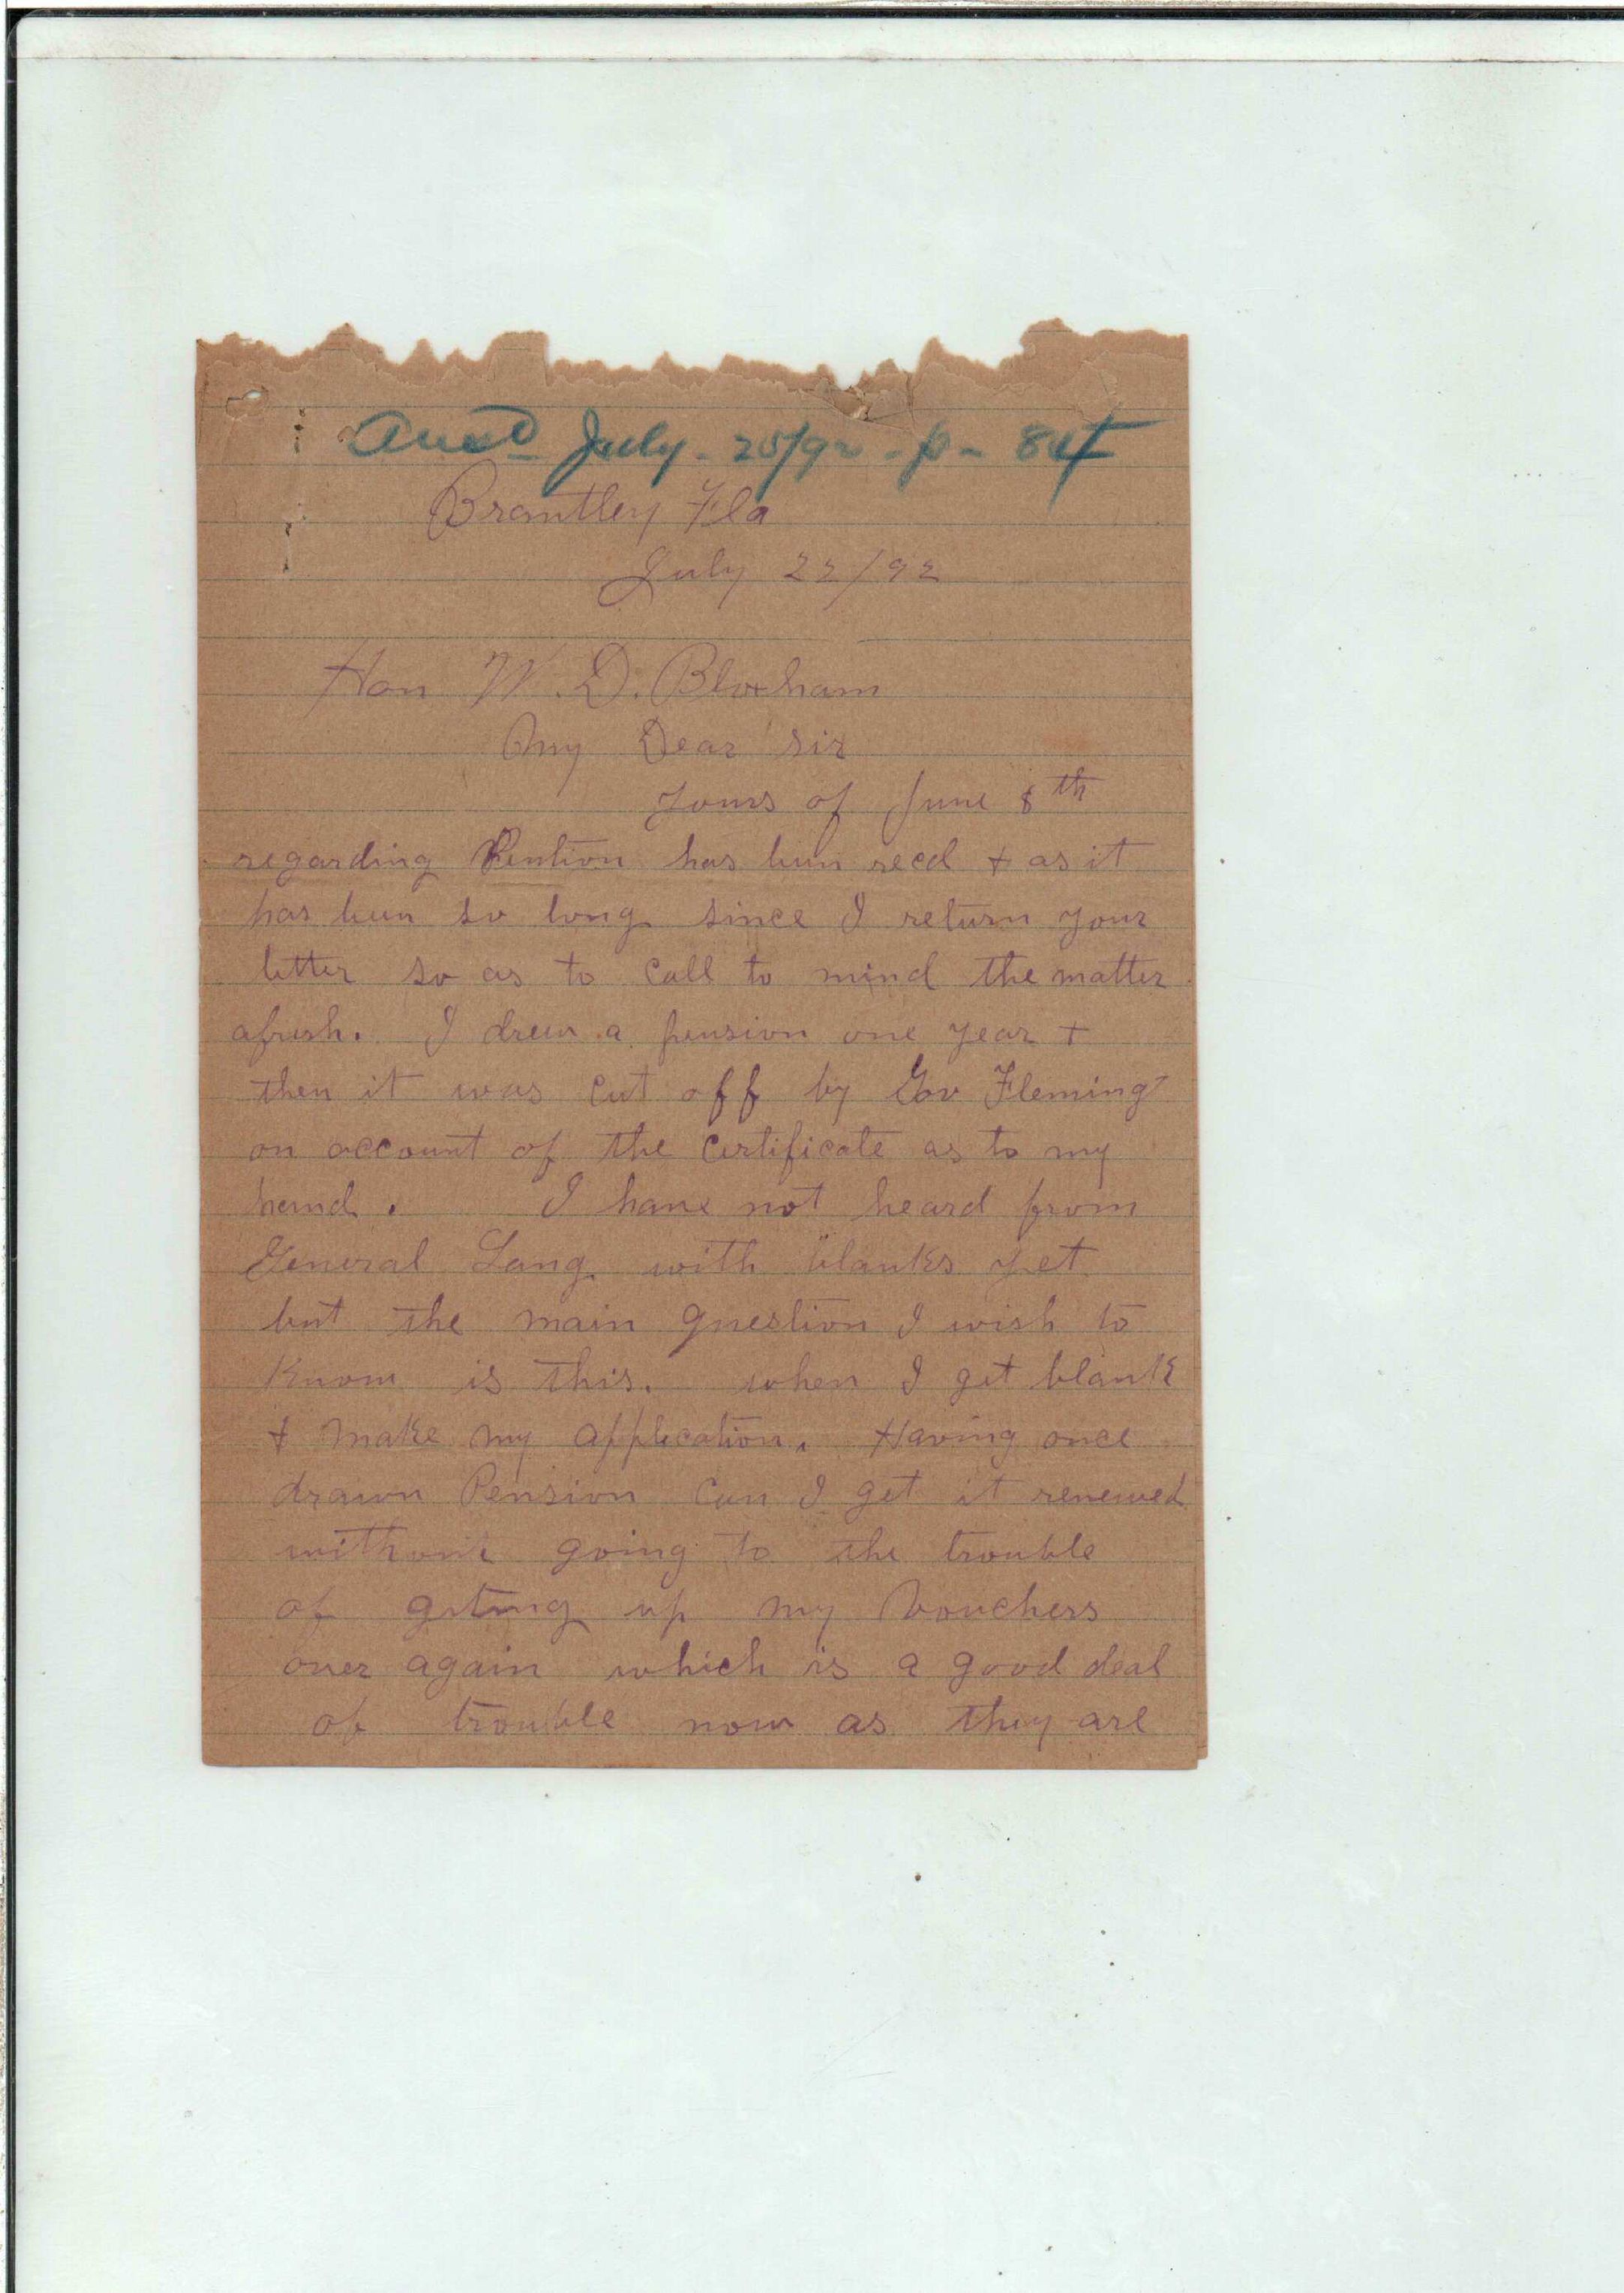 Ansd July - 25/92 - p - 84
Brantley Fla
July 22/92
Hon W. D. Bloxham
My Dear Sir
Yours of June 8th
regarding Pention has bun recd + as it
has bun so long since I return your
letter so as to call to mind the matter
afresh. I drew a pension one year +
then it was cut off by Gov Fleming
on account of the certificate as to my
hand. I have not heard from
General Lang with blanks yet
but the main question I wish to
Know is this. when I get blank
+ make my application. Having once
drawn Pension can I get it renewed
without going to the trouble
of geting up my Vouchers
over again which is a good deal
of trouble now as they are